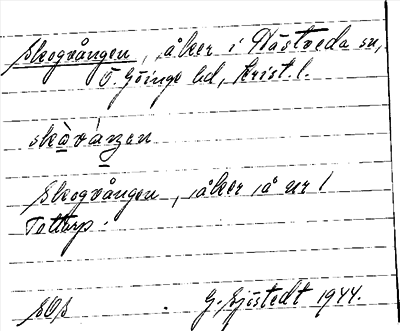 Skogvången, åker i Hästveda sn,
Ö. Göinge hd, Krist. l.
skòvánₑn
Skogvången, åker å nr 1
Tottarp.
SOS G. Sjöstedt 1944.